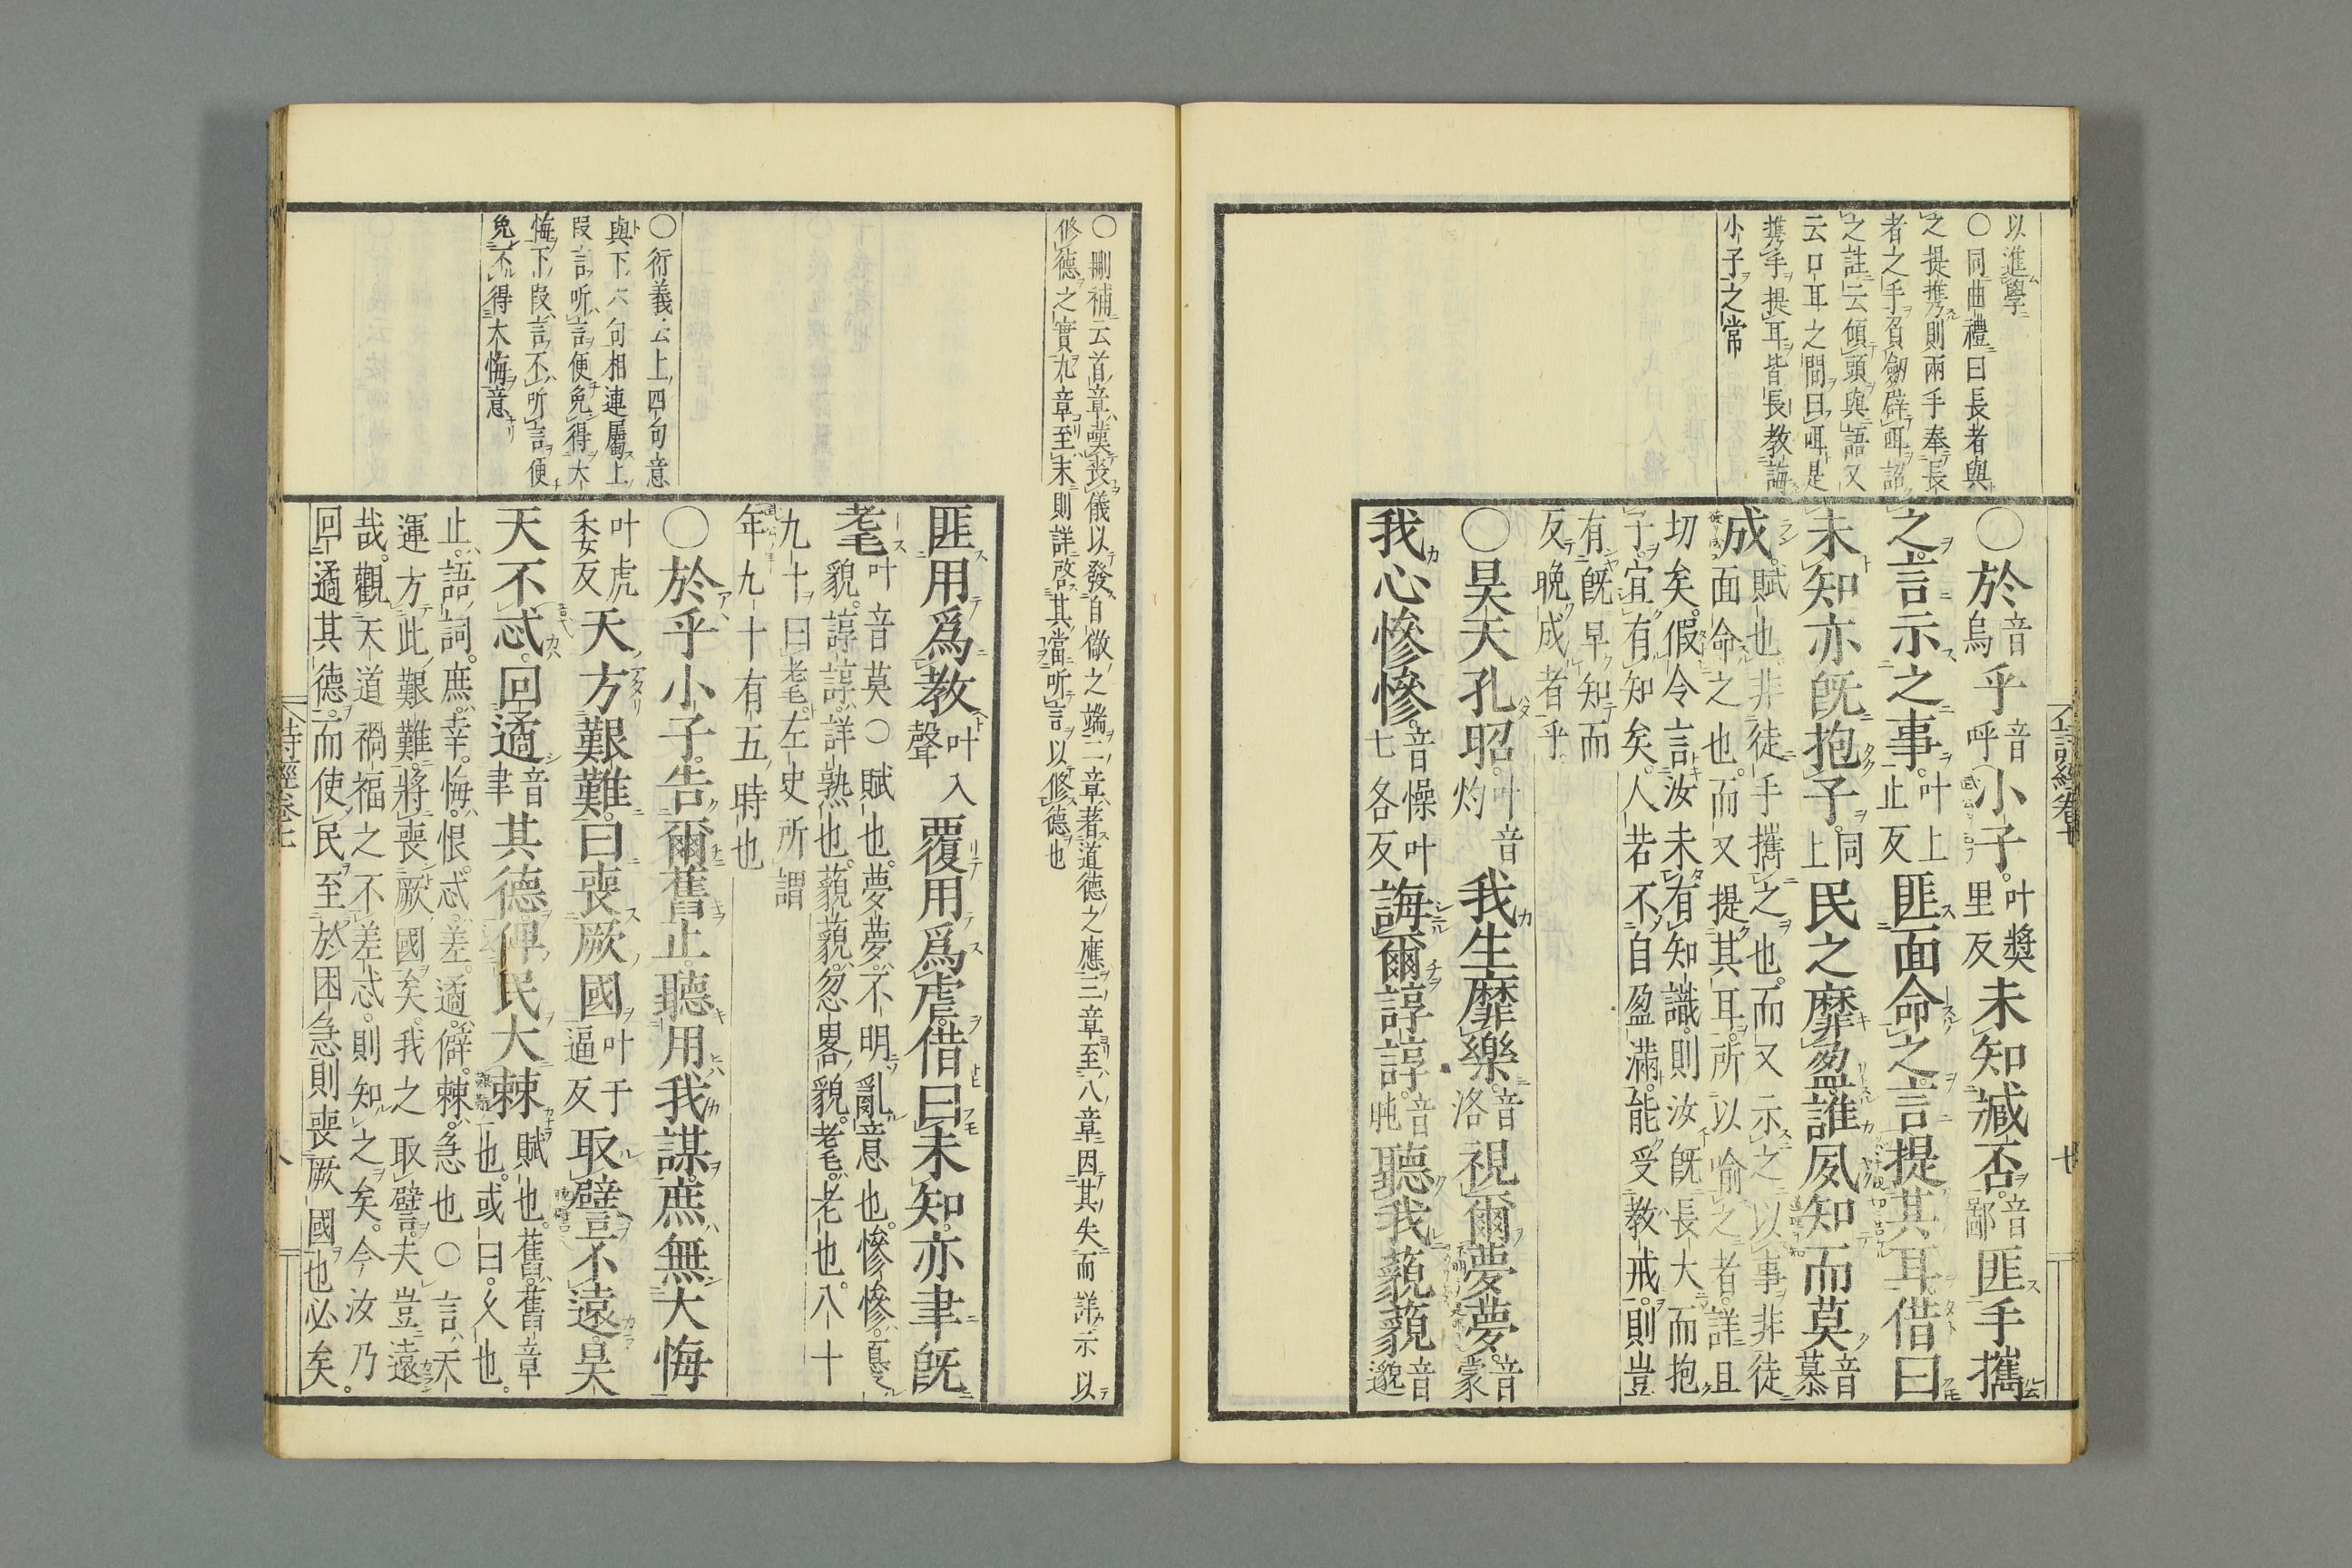 以進學
○同曲禮曰長者與
之提攜則兩手奉長
者之手負劒辟咡詔
之註云傾頭與語又
云口耳之間曰咡是
攜手提耳皆長教誨
小子之常
○於音烏乎音呼小子叶奬里反未知臧否音鄙匪手攜
之言示之事叶上止反匪面命之言提其耳借曰
未知亦旣抱子同上民之靡盈誰夙知而莫音慕
成賦也非徒手攜之也而又示之以事非徒
面命之也而又提其耳所以喻之者詳且
切矣假令言汝未有知識則汝旣長大而抱
子宜有知矣人若不自盈滿能受教戒則豈
有旣早知而
反晩成者乎
○昊天孔昭叶音灼我生靡樂音洛視爾夢夢音蒙
我心慘慘音懆叶七各反誨爾諄諄音肫聽我藐藐音邈
○刪補云首章嘆喪儀以發自儆之端二章著道德之應三章至八章因其失而詳示以
修德之實九章至末則詳啓其當听言以修德也
匪用爲教叶入聲覆用爲虐借曰未知亦聿旣
耄叶音莫○賦也夢夢不明亂意也慘慘憂
貌諄諄詳熟也藐藐忽畧貌耄老也八十
九十曰耄左史所謂
年九十有五時也
○於乎小子告爾舊止聽用我謀庶無大悔
叶虎委反天方艱難曰喪厥國叶于逼反取譬不遠昊
天不忒回遹音聿其德俾民大棘賦也舊舊章
也或曰久也
止語詞庶幸悔恨忒差遹僻棘急也○言天
運方此艱難將喪厥國矣我之取譬夫豈遠
哉觀天道禍福之不差忒則知之矣今汝乃
回遹其德而使民至於困急則喪厥國也必矣
○衍義云上四句意
與下六句相連屬上
叚言听言便免得大
悔下叚言不听言便
免不得大悔意